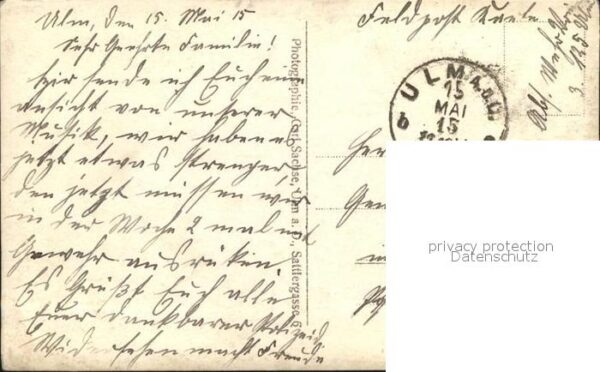 Ulm, den 15. Mai 15
Sehr Geehrte Familie!
Hir sende ich Euch eine
Ansicht von unserer
Musik, wir haben es
jetzt etwas strenger,
den jetzt müssen wir
in der Woche 2 mal mit
Gewehr ausrüken.
Es Grüßt Euch alle
Euer dankbarer
Widersehen macht Freude
Photographie, Carl Sachse, Ulm a. D., Sattlergasse 6
Feldpost Karte
Abs.
ULM a.D.
15
MAI
15
b
Gem
in
privacy protection
Datenschutz